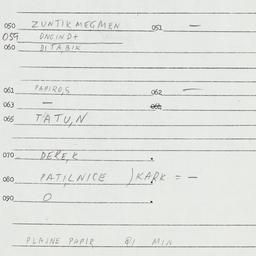 050 ZUNTIKMEGMEN 051 —
059 DNGIND+
060 DITABIK
061 PAPIROS 062 —
063 — 064
065 TATU,N
070 DEREK
080 PATILNICE ) KARK = —
090 O
PLAJNE PAPIR 81 MIN